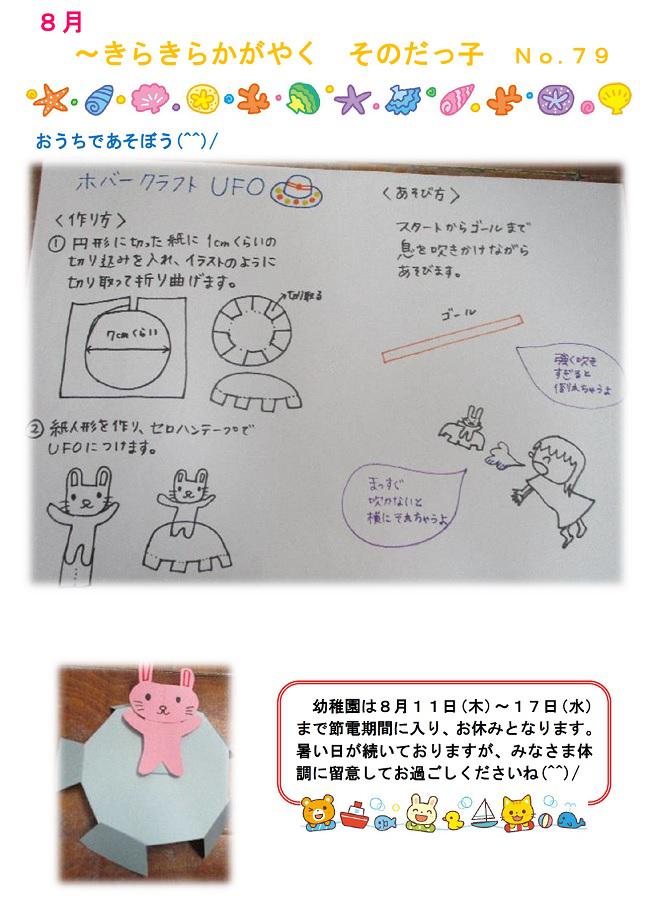 8月
～きらきらかがやく　そのだっ子　No.79
おうちであそぼう(^^)/
ホバークラフト UFO
〈作り方〉
① 円形に切った紙に 1cmくらいの
切り込みを入れ、イラストのように
切り取って折り曲げます。
7cmくらい
切り取る
② 紙人形を作り、セロハンテープで
UFOにつけます。
〈あそび方〉
スタートからゴールまで
息を吹きかけながら
あそびます。
ゴール
強く吹き
すぎると
倒れちゃうよ
まっすぐ
吹かないと
横にそれちゃうよ
幼稚園は8月11日(木)～17日(水)
まで節電期間に入り、お休みとなります。
暑い日が続いておりますが、みなさま体
調に留意してお過ごしくださいね(^^)/